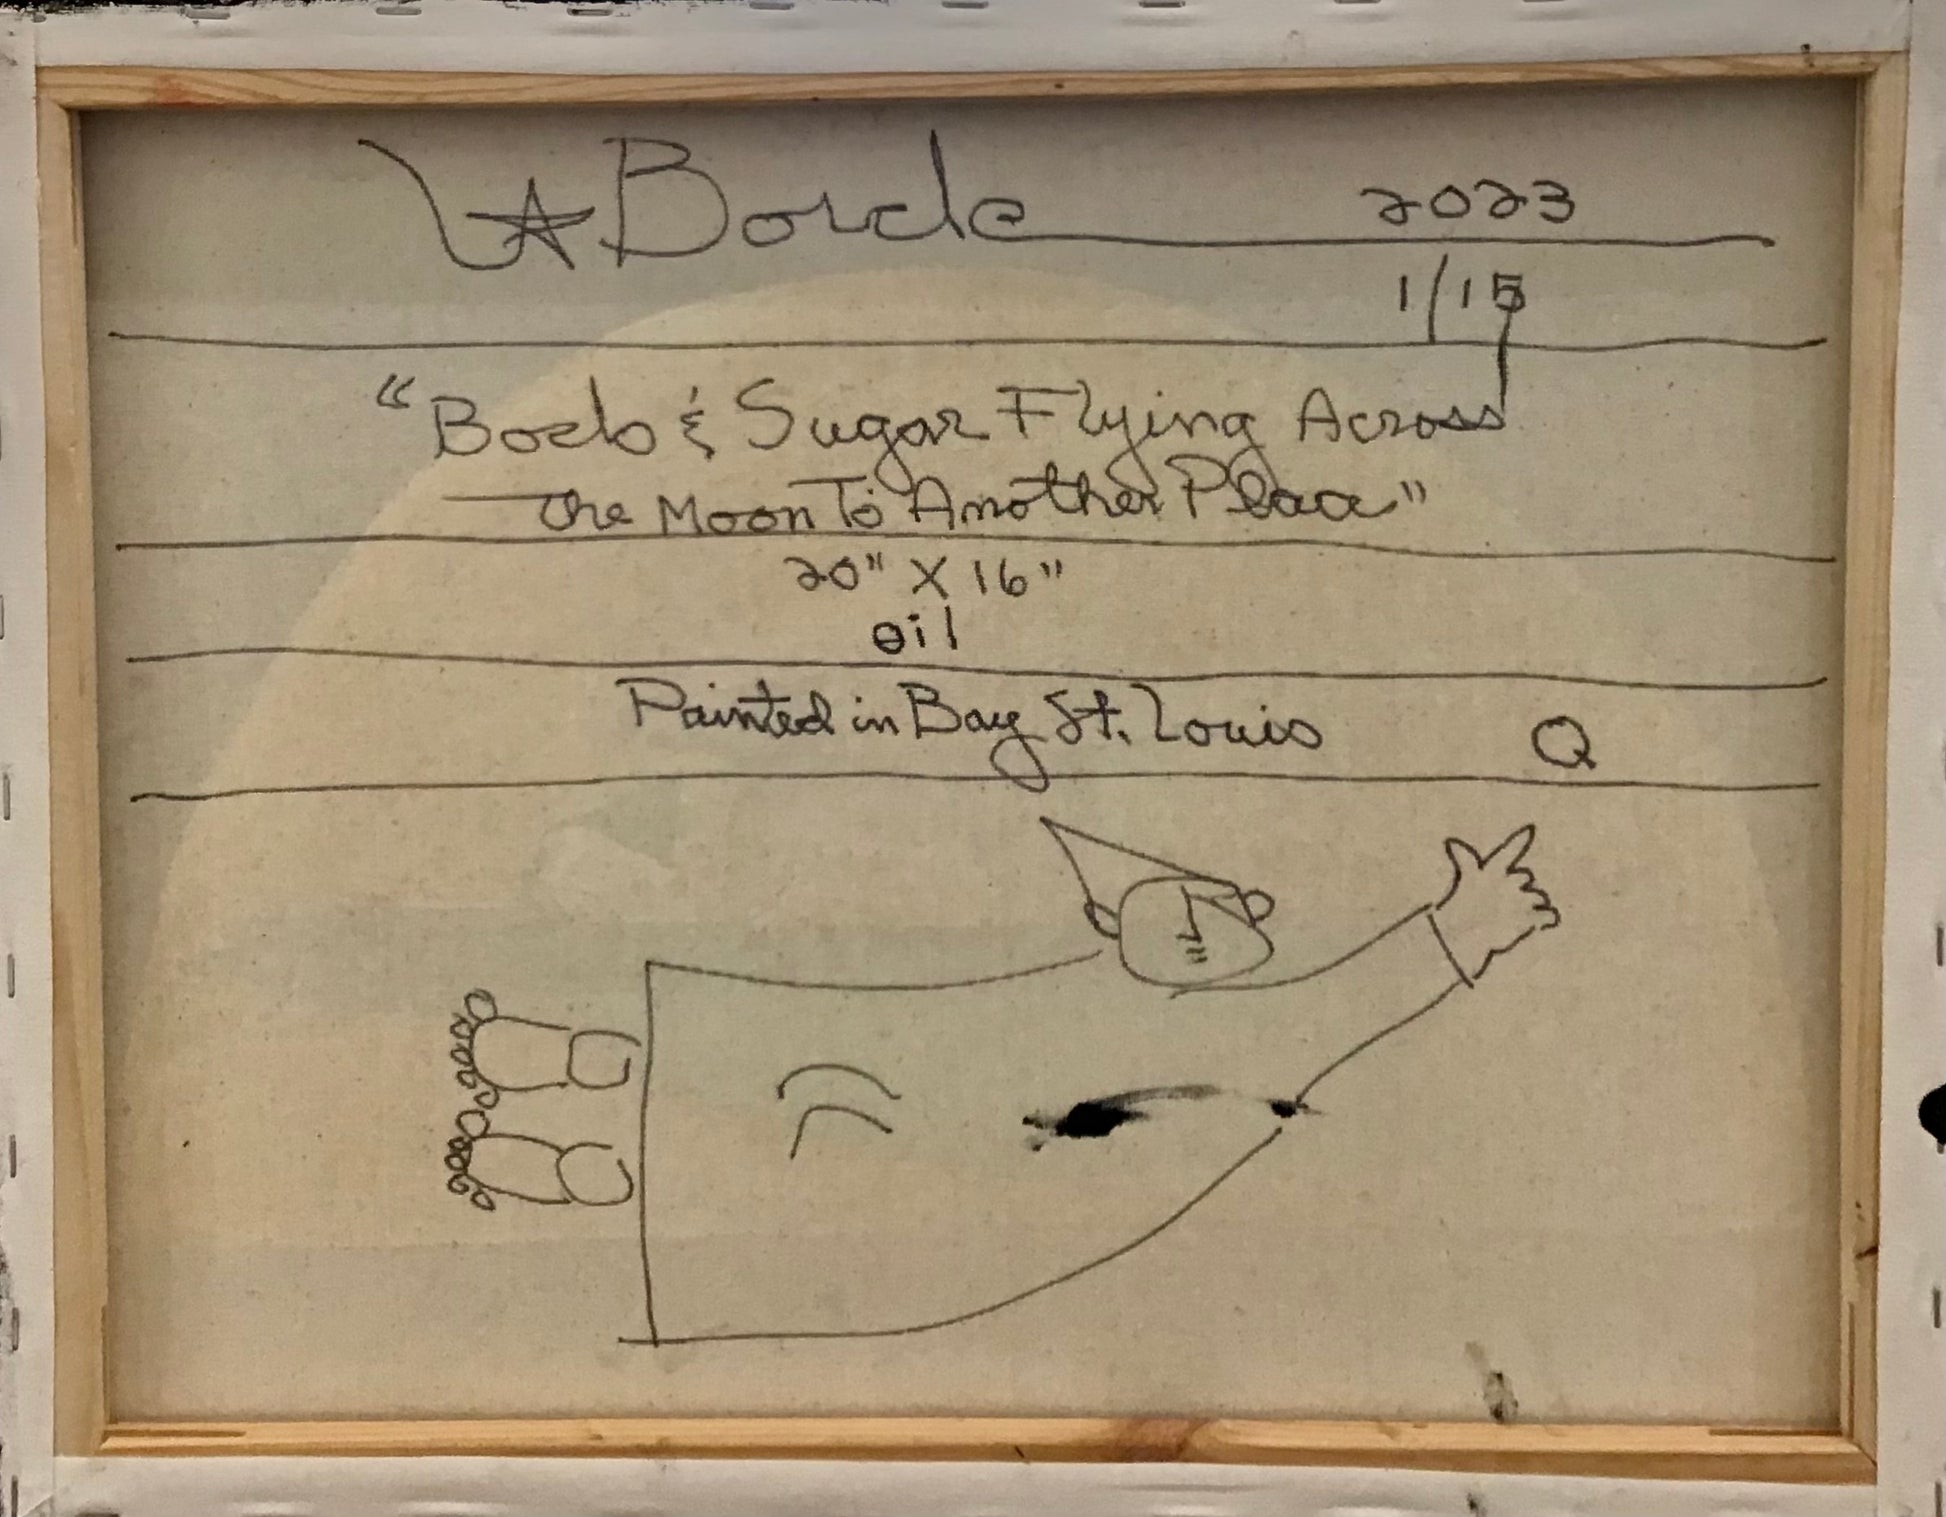 LABorde 2023
1/15
"Boeb & Sugar Flying Across
The Moon To Another Place"
20" X 16"
oil
Painted in Bay St. Louis Q